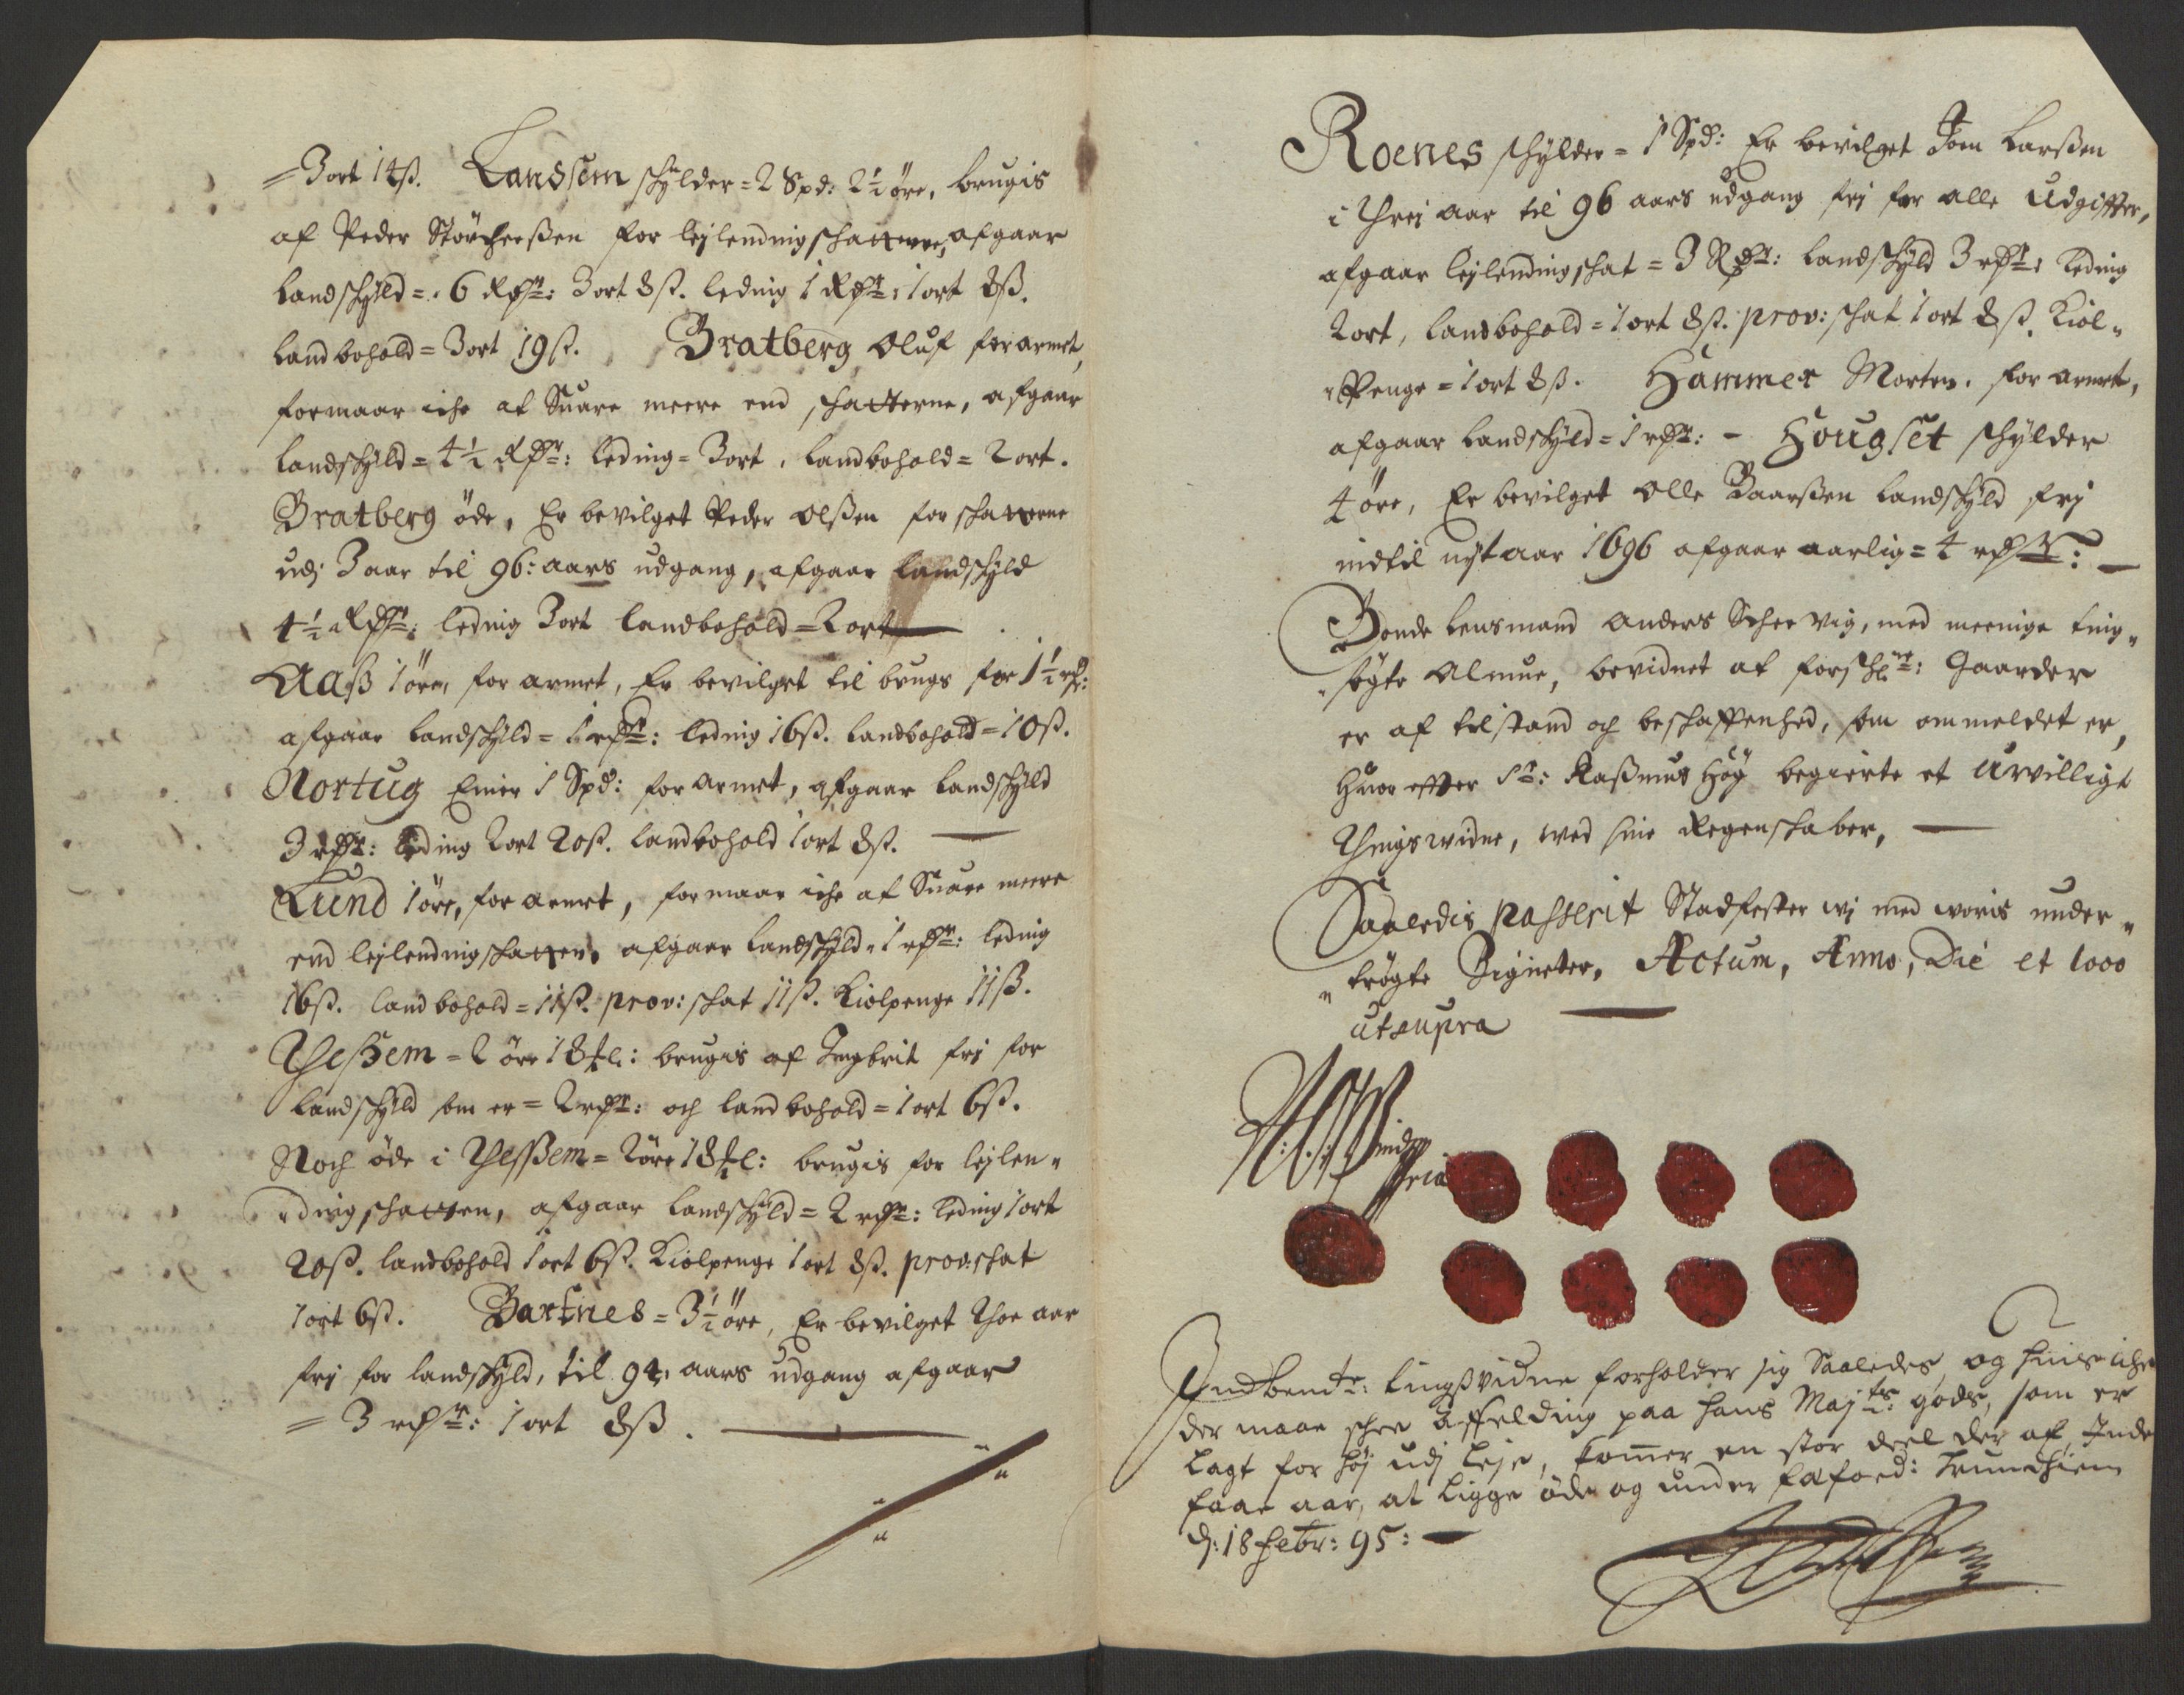 = 3 ort 14 ß. Landsem schÿlder = 2 Spd: 2½ öre, brugis
af Peder Størchersßen for lejlendingschatterne, afgaar
Landschÿld = 6 Rdr: 3 ort 8 ß. leding 1 Rdr: 1 ort 8 ß.
Landbohold = 3 ort 19 ß. Bratberg Oluf forarmet,
formaar iche at Suare meere end schatterne, afgaar
Landschÿld = 4½ Rdr: leding = 3 ort, Landbohold = 2 ort.
Bratberg öde, Er bevilget Peder Olßen for schatterne
udj 3 aar til 96: aars udgang, afgaar Landschÿld
4½ Rdr: leding 3 ort landbohold = 2 ort
Aaß 1 öre, forarmet, Er bevilget til brugs for 1½ rdr:
afgaar Landschÿld = 1 rdr: leding 16 ß. Landbohold = 10 ß.
Nortug Einer 1 Spd: forarmet, afgaar Landschÿld
3 rdr: leding 2 ort 20 ß. Landbohold 1 ort 8 ß.
Lund 1 öre, forarmet, formaar iche at Suare meere
end lejlendingschatten, afgaar Landschÿld = 1 rdr: leding
16 ß. landbohold = 11 ß. prov: schat 11 ß. Kiolpenge 11 ß.
Theßem = 2 öre 18 tl: brugis af Ingbrit frj for
Landschÿld som er = 2 rdr: och landbohold = 1 ort 6 ß.
Noch öde i Thesßem = 2 öre 18 tl: brugis for lejlen„
„dingschatten, afgaar Landschÿld = 2 rdr: leding 1 ort
20 ß. landbohold 1 ort 6 ß. Kiolpenge 1 ort 8 ß. prov: schat
1 ort 6 ß. Bartnes = 3½ öre, Er bevilget Thoe aar
frj for landschÿld, til 94 aars udgang afgaar
= 3 rdr: 1 ort 8 ß.
Roenes schÿlder = 1 Spd: Er bevilget Joen Larßen
i Threj aar til 96 aars udgang frj for alle Udgiffter,
afgaar lejlendingschat = 3 Rdr: Landschÿld 3 rdr: leding
2 ort, landbohold = 1 ort 8 ß. prov: schat 1 ort 8 ß. Kiol„
„Penge = 1 ort 8 ß. Hammer Morten. forarmet,
afgaar Landschÿld = 1 rdr: – Hougset schÿlder
4 öre, Er bevilget Olle Baarßen Landschÿld frj
indtil nÿt aar 1696 afgaar aarlig = 4 rdr:
Bonde Lensmand Anders Scheevig, med meenige ting„
„søgte Almue, bevidnet at forschrne: Gaarder
er af tilstand och beschaffenhed, som ommeldet er,
Huor effter Sr: Raßmus Høÿ begierte et Uvilligt
Thingswidne, wed sine Regenschaber,
Saaledis Passerit Stadfester wj med woris under„
„trögte Signeter, Actum, Anno, Die et loco
ut supra
Indbemte: tingsvidne forholder sig Saaledes, og huis iche
der maae schee Affelding paa hans Majts: gods, som er
Lagt for høj udj Leje, komer en stor deel der af, Inden
faae aar, at ligge öde og under fæfoed: Trundhiem
d: 18 Febr: 95: